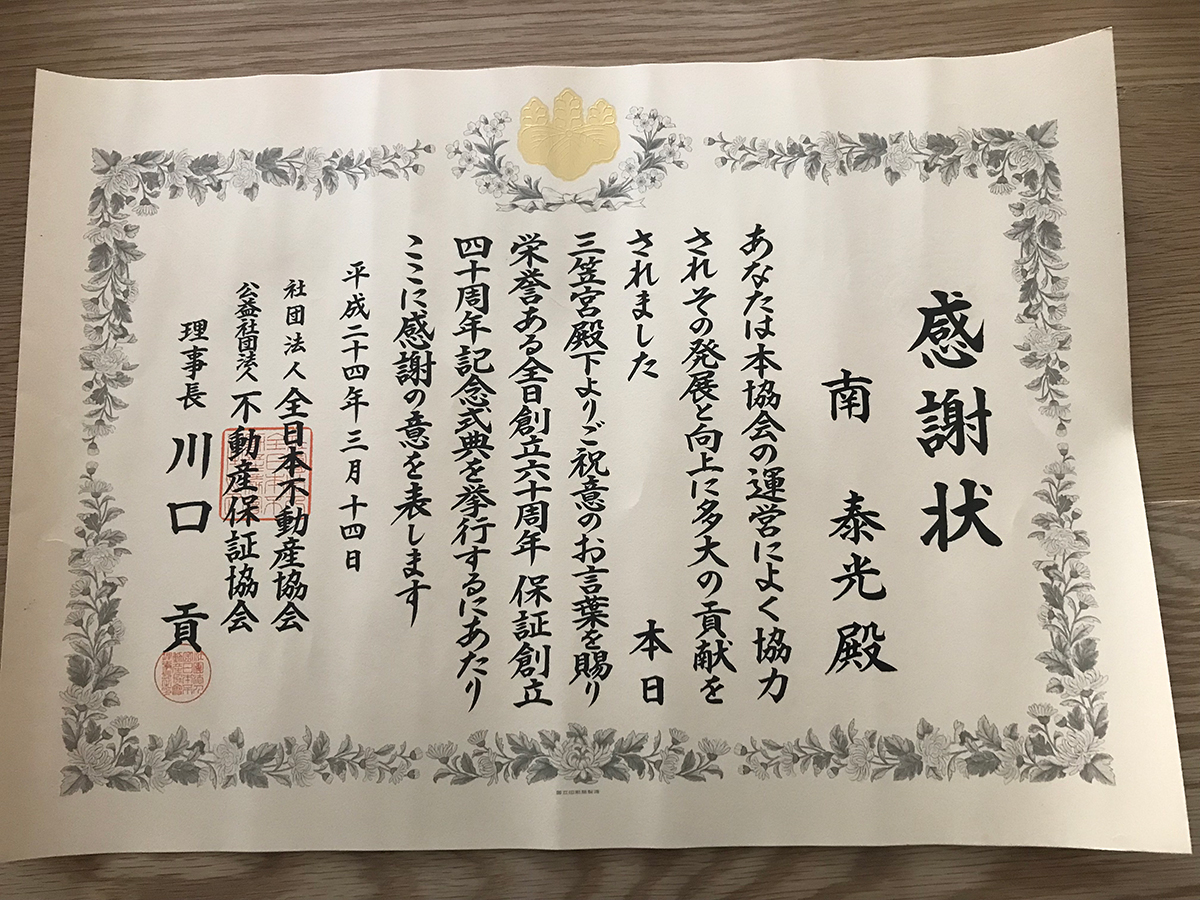 感謝状
南 泰光 殿
あなたは本協会の運営によく協力
されその発展と向上に多大の貢献を
されました 本日
三笠宮殿下よりご祝意のお言葉を賜り
栄誉ある全日創立六十周年 保証創立
四十周年記念式典を挙行するにあたり
ここに感謝の意を表します
平成二十四年三月十四日
社団法人 全日本不動産協会
公益社団法人 不動産保証協会
理事長 川口 貢